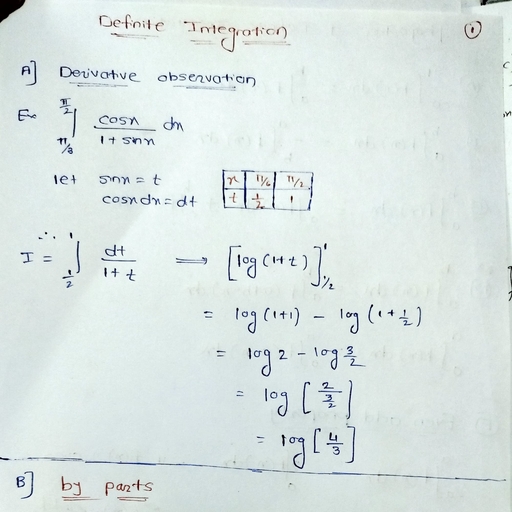 Definite Integration
①
A] Derivative observation
Ex ∫_{π/3}^{π/2} cosx/(1 + sinx) dx
let sinx = t
cosxdx = dt
x | π/6 | π/2
t | 1/2 | 1
∴ I = ∫_{1/2}^{1} dt/(1 + t) ⟹ [log(1+t)]_{1/2}^{1}
= log(1+1) - log(1+1/2)
= log2 - log 3/2
= log [2/(3/2)]
= log [4/3]
B] by parts